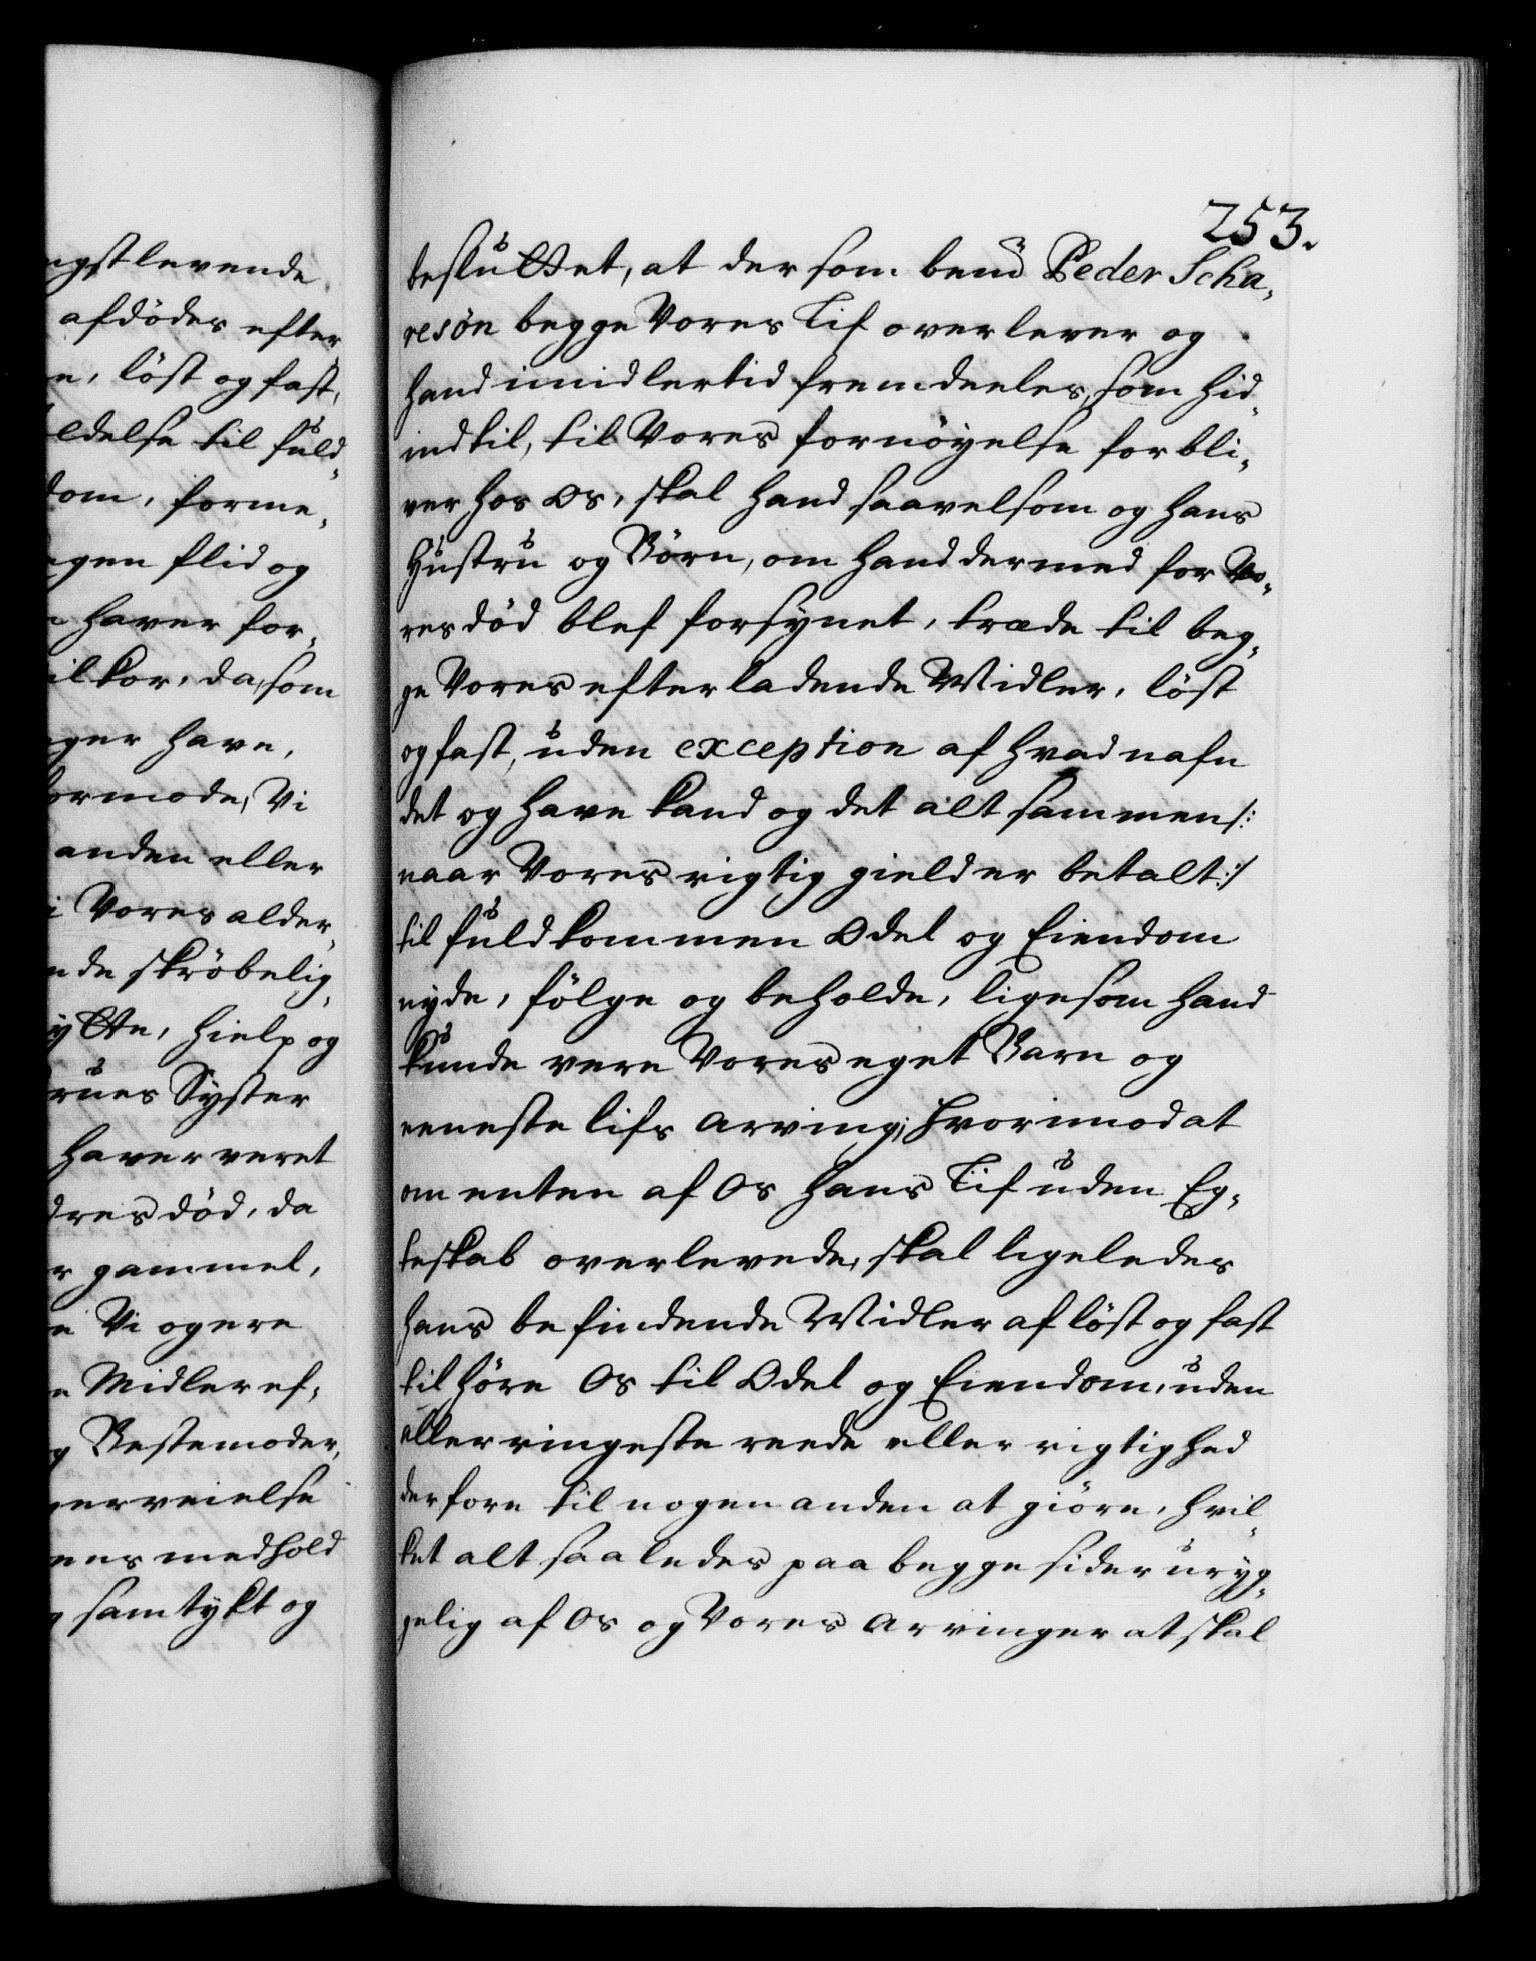 ngstlevende
afdödes efter
e, löst og fast,
ldelse til fuld-
dom, forme-
gen flid og
haver for-
ilkor, da, som
ger have,
formode, Vi
anden eller
i Vores alder-
nde skröbelig-
ytte, hielp og
rues Syster
haver veret
dres död, da
r gammel,
e Vi ogere
e Midler ef-
g Bestemoder,
erveielse
ens medhold
g samtykt og
253.
besluttet, at dersom bemte Peder Scha-
resøn begge Vores Lif overlever og
hand imidlertid fremdeeles, som hid-
indtil, til Vores fornöyelse forbli-
ver hos Os, skal hand saavelsom og hans
Hustru og Börn, om hand dermed for Vo-
res död blef forsynet, træde til beg-
ge Vores efterladende Midler, löst
og fast, uden exception af hvad nafn
det og have kand og det alt sammen /:
naar Vores rigtig gield er betalt :/
til fuldkommen Odel og Eiendom
nyde, fölge og beholde, ligesom hand
kunde vere Vores eget Barn og
eeneste lifs Arving; Hvorimod at
om enten af Os hans Lif uden Eg-
teskab overlevede, skal ligeledes
hans befindende Midler af löst og fast
tilhöre Os til Odel og Eiendom, uden
allerringeste reede eller rigtighed
derfore til nogen anden at giöre, hvil-
ket alt saaledes paa begge sider uryg-
gelig af Os og Vores Arvinger at skal